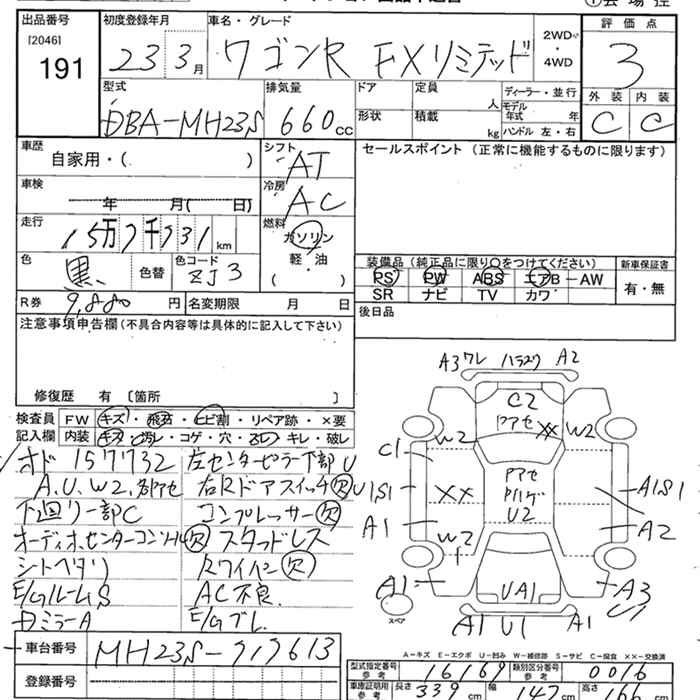 出品番号
[2046]
191
初度登録年月
23 3月
車名・グレード
ワゴンR FXリミテッド
2WD・4WD
評価点
3
外装 内装
C C
型式
DBA-MH23S
排気量
660cc
ドア
定員
人
形状
積載
kg
ディーラー・並行
モデル年式 年
ハンドル 左・右
車歴
自家用・( )
シフト
AT
セールスポイント (正常に機能するものに限ります)
車検
年 月( 日)
冷房
AC
走行
15万7千731km
燃料
ガソリン
軽・油
( )
色
黒
色替
色コード
ZJ3
装備品 (純正品に限り○をつけてください)
PS PW ABS エアB AW
SR ナビ TV カワ
新車保証書
有・無
R券 9,880円
名変期限 月 日
後日品
注意事項申告欄(不具合内容等は具体的に記入して下さい)
修復歴 有 〔箇所 〕
検査員記入欄
FW キズ・飛石・ヒビ割・リペア跡・×要
内装 キズ・汚レ・コゲ・穴・スレ・キレ・破レ
オド 157732
左センターピラー下部U
A.U.W2.
右Rドアスイッチ欠
下回リ一部C
コンプレッサー欠
欠
スタッドレス
シートヘタリ
Rワイパー欠
E/GルームS
AC不良
DミラーA
E/Gブレ
車台番号
MH23S-919613
登録番号
A3 ワレ A2
C2
アセ
XX
W2 W2
C1
U1S1
XX
アセ
U2
A1S1
A1
A2
W2
A1
UA1
A3
スペア
A1 U1 A1
A-キズ E-エクボ U-凹み W-補修跡 S-サビ C-腐食 ××-交換済
型式指定番号 参考 16169
類別区分番号 参考 0016
車庫証明用 参考
長さ 339cm
幅 147cm
高さ 166cm